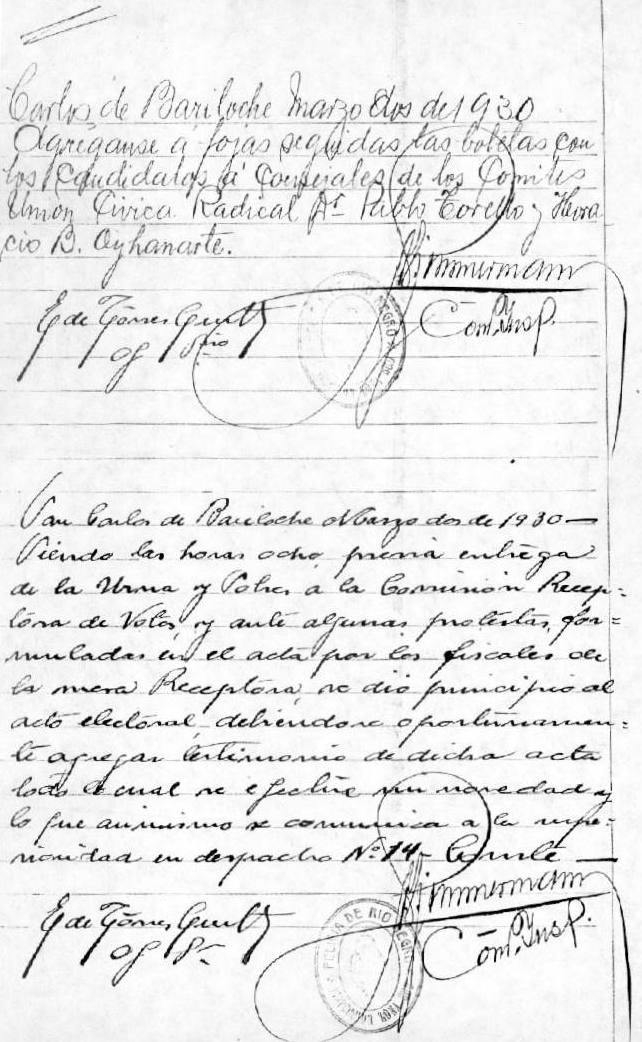 Carlos de Bariloche Marzo dos de 1930
Agréganse á fojas seguidas las boletas con
los candidatos á Concejales de los Comités
Unión Cívica Radical Dr. Pablo Torello y Hora
cio B. Oyhanarte.
Zimmermann
Com. Insp.
E de Torres
of
San Carlos de Bariloche Marzo dos de 1930—
Siendo las horas ocho, previa entrega
de la Urna y Sobres a la Comisión Recep=
tora de Votos, y ante algunas protestas, for=
muladas en el acta por los fiscales de
la mesa Receptora, se dió principio al
acto electoral, debiéndose oportunamen=
te agregar testimonio de dicha acta
todo lo cual se efectúe sin novedad y
lo que asimismo se comunica a la supe=
rioridad en despacho Nº 14— Conste—
Zimmermann
Com. Insp.
E de Torres
of
DE RIO NEGRO